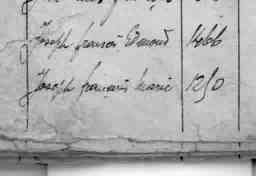 Joseph francois Edmond 1466
Joseph françois marie 1250